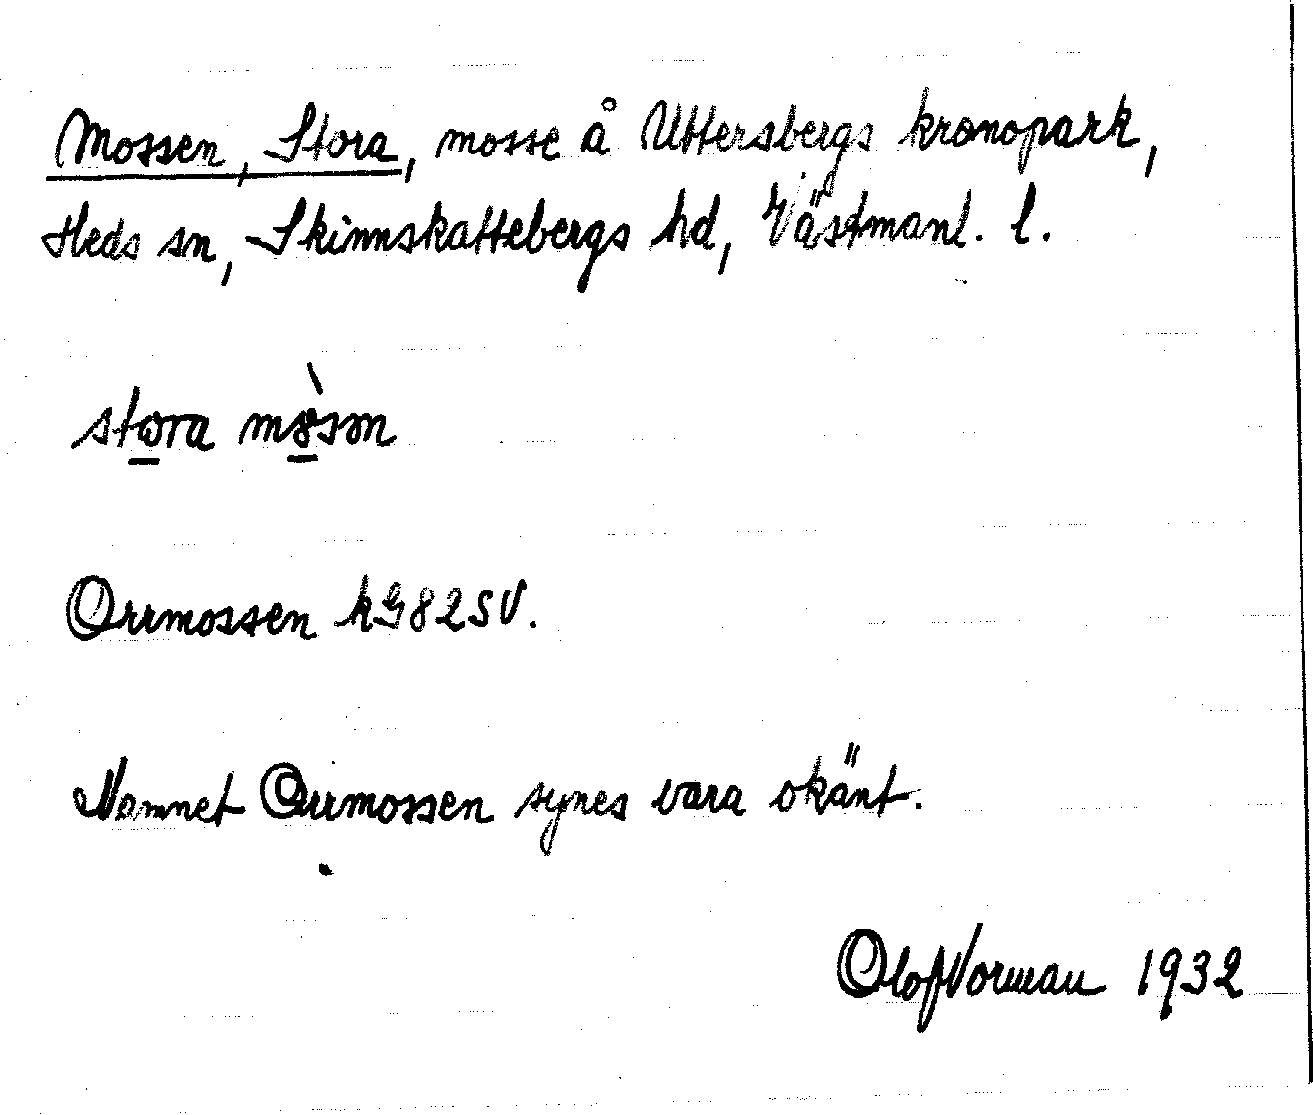 Mossen, Stora, mosse å Uttersbergs kronopark,
Heds sn, Skinnskattebergs hd, Västmanl. l.
stωra mò̱sən
Orrmossen kG82SV.
Namnet Orrmossen synes vara okänt.
Olof Norman 1932